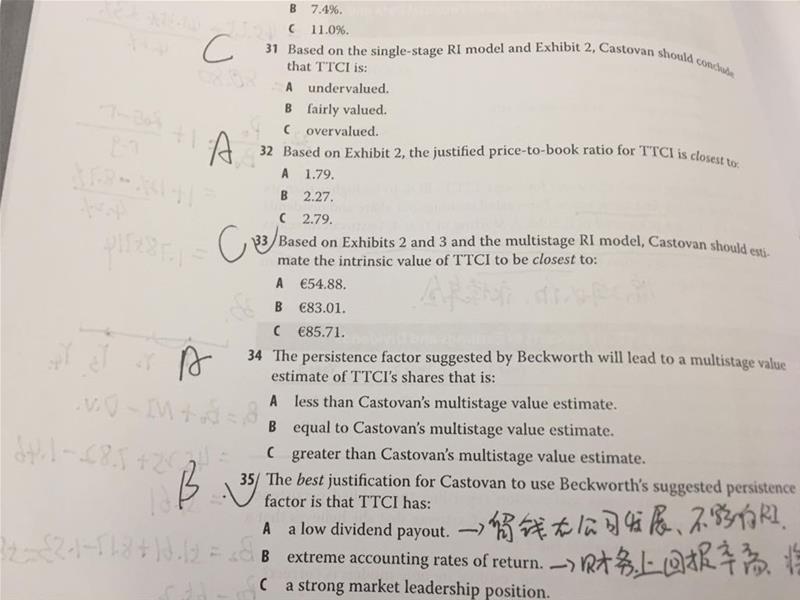 B 7.4%.
C 11.0%.
C 31 Based on the single-stage RI model and Exhibit 2, Castovan should conclude
that TTCI is:
A undervalued.
B fairly valued.
C overvalued.
A 32 Based on Exhibit 2, the justified price-to-book ratio for TTCI is closest to:
A 1.79.
B 2.27.
C 2.79.
C 33 Based on Exhibits 2 and 3 and the multistage RI model, Castovan should esti-
mate the intrinsic value of TTCI to be closest to:
A €54.88.
B €83.01.
C €85.71.
A 34 The persistence factor suggested by Beckworth will lead to a multistage value
estimate of TTCI's shares that is:
A less than Castovan's multistage value estimate.
B equal to Castovan's multistage value estimate.
C greater than Castovan's multistage value estimate.
B 35 The best justification for Castovan to use Beckworth's suggested persistence
factor is that TTCI has:
A a low dividend payout. → 留钱在公司发展、不影响RI.
B extreme accounting rates of return. → 财务上回报率高、
C a strong market leadership position.